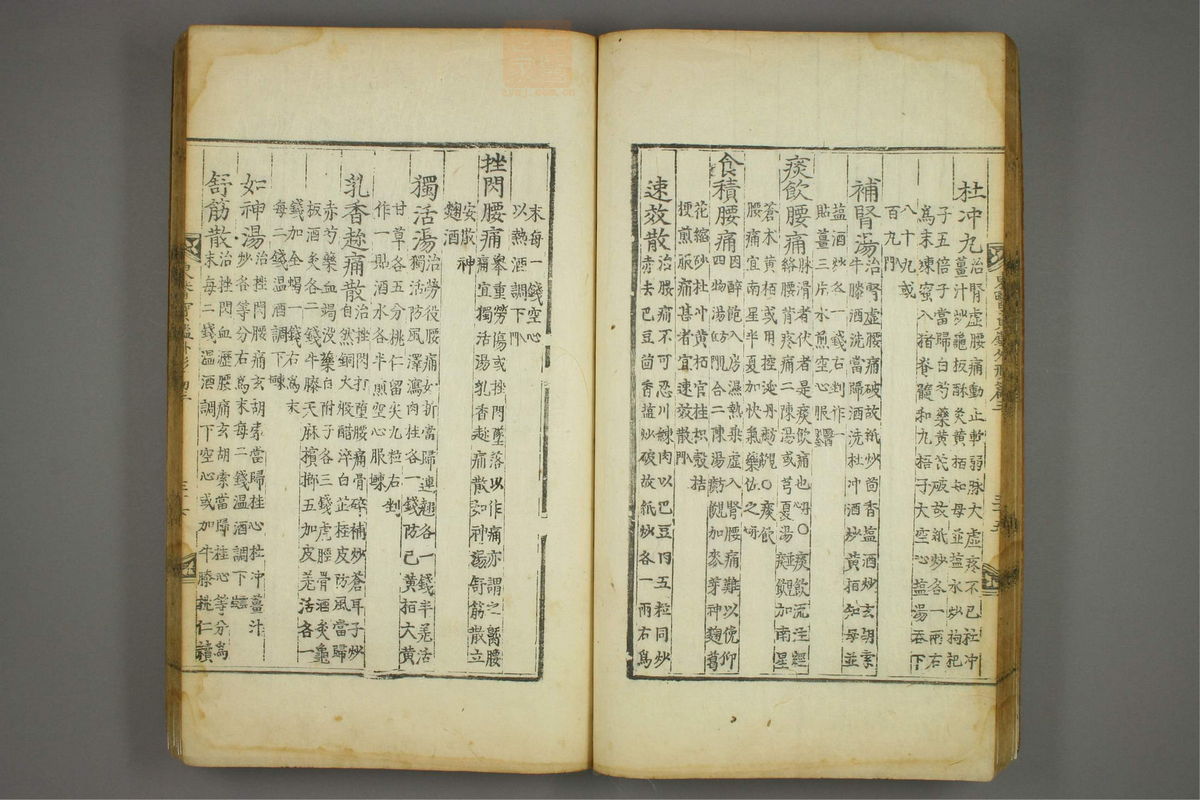 杜冲丸
治腎虛腰痛動止軟弱脉大虛疼不已杜冲
薑汁炒龜板酥灸黃栢知母並塩水炒枸杞
子五倍子當歸白芍藥黃芪破故紙炒各一兩右
爲末煉蜜入猪脊髓和丸梧子大空心塩湯吞下
八十丸或
百丸入門
補腎湯
治腎虛腰痛破故紙炒茴香塩酒炒玄胡索
牛膝酒洗當歸酒洗杜冲酒炒黃栢知母並
塩酒炒各一錢右剉作一
貼薑三片水煎空心服醫鑑
痰飮腰痛
脉滑者伏者是痰飮痛也丹心○痰飮流注經
絡腰背疼痛二陳湯或芎夏湯加南星
蒼朮黃栢或用控涎丹○痰飮
腰痛宜南星半夏加快氣藥佐之丹心
食積腰痛
因醉飽入房濕熱乘虛入腎腰痛難以俛仰
四物湯合二陳湯加麥芽神麴葛
花縮砂杜冲黃栢官桂枳殼桔
梗煎服痛甚者宜速效散入門
速效散
治腰痛不可忍川練肉以巴豆肉五粒同炒
赤去巴豆茴香塩炒破故紙炒各一兩右爲
末每一錢空心
以熱酒調下入門
挫閃腰痛
擧重勞傷或挫閃墜落以作痛亦謂之䐴腰
痛宜獨活湯乳香趂痛散如神湯舒筋散立
安散神
麴酒
獨活湯
治勞役腰痛如折當歸連翹各一錢半羌活
獨活防風澤瀉肉桂各一錢防己黃栢大黃
甘草各五分桃仁留尖九粒右剉
作一貼酒水各半煎空心服
乳香趂痛散
治挫閃打墮腰痛骨碎補炒蒼耳子炒
自然銅火煅醋淬白芷桂皮防風當歸
赤芍藥血竭沒藥白附子各三錢虎脛骨酒灸龜
板酒灸各二錢牛膝天麻檳榔五加皮羌活各一
錢加全蝎一錢右爲末
每二錢溫酒調下
如神湯
治挫閃腰痛玄胡索當歸桂心杜冲薑汁
炒各等分右爲末每二錢溫酒調下
舒筋散
治挫閃血瀝腰痛玄胡索當歸桂心等分爲
末每二錢溫酒調下空心或加牛膝桃仁續